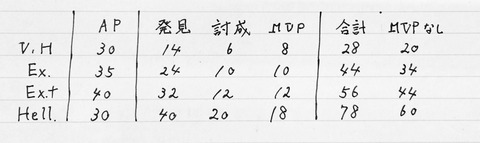 AP 発見 討成 MVP 合計 MVPなし
V.H 30 14 6 8 28 20
Ex. 35 24 10 10 44 34
Ex.+ 40 32 12 12 56 44
Hell. 30 40 20 18 78 60